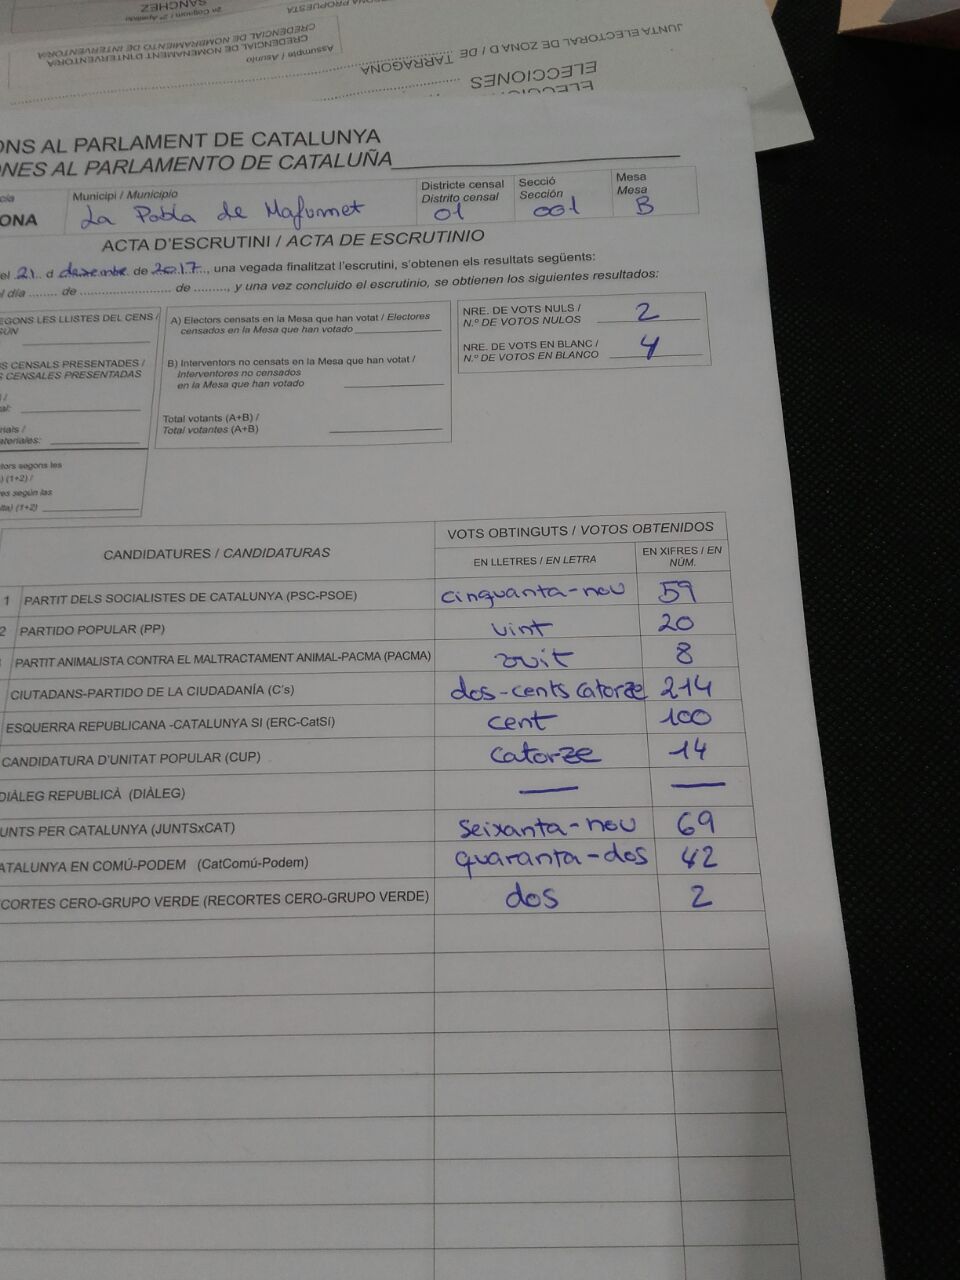 2n Cognom / 2º Apellido
SANCHEZ
PROPUESTA
Assumpte / Asunto
CREDENCIAL DE NOMENAMENT D'INTERVENTOR/A
CREDENCIAL DE NOMBRAMIENTO DE INTERVENTOR/A
JUNTA ELECTORAL DE ZONA D / DE TARRAGONA
ELECCIONES
ONS AL PARLAMENT DE CATALUNYA
ONES AL PARLAMENTO DE CATALUÑA
cia
Municipi / Municipio
Districte censal
Distrito censal
Secció
Sección
Mesa
Mesa
ONA
La Pobla de Mafumet
01
001
B
ACTA D'ESCRUTINI / ACTA DE ESCRUTINIO
el 21 d desembre de 2017, una vegada finalitzat l'escrutini, s'obtenen els resultats següents:
l día ........ de .......................... de ........., y una vez concluido el escrutinio, se obtienen los siguientes resultados:
EGONS LES LLISTES DEL CENS /
GÚN
S CENSALS PRESENTADES /
S CENSALES PRESENTADAS
) /
al:
rials /
ateriales:
tors segons les
) (1+2) /
es según las
lta) (1+2)
A) Electors censats en la Mesa que han votat / Electores
censados en la Mesa que han votado
B) Interventors no censats en la Mesa que han votat /
Interventores no censados
en la Mesa que han votado
Total votants (A+B) /
Total votantes (A+B)
NRE. DE VOTS NULS /
N.º DE VOTOS NULOS 2
NRE. DE VOTS EN BLANC /
N.º DE VOTOS EN BLANCO 4
CANDIDATURES / CANDIDATURAS
VOTS OBTINGUTS / VOTOS OBTENIDOS
EN LLETRES / EN LETRA
EN XIFRES / EN
NÚM.
1 PARTIT DELS SOCIALISTES DE CATALUNYA (PSC-PSOE) cinquanta-nou 59
2 PARTIDO POPULAR (PP) vint 20
PARTIT ANIMALISTA CONTRA EL MALTRACTAMENT ANIMAL-PACMA (PACMA) vuit 8
CIUTADANS-PARTIDO DE LA CIUDADANÍA (C's) dos-cents catorze 214
ESQUERRA REPUBLICANA -CATALUNYA SI (ERC-CatSí) cent 100
CANDIDATURA D'UNITAT POPULAR (CUP) catorze 14
DIÀLEG REPUBLICÀ (DIÀLEG) — —
UNTS PER CATALUNYA (JUNTSxCAT) seixanta-nou 69
ATALUNYA EN COMÚ-PODEM (CatComú-Podem) quaranta-dos 42
ECORTES CERO-GRUPO VERDE (RECORTES CERO-GRUPO VERDE) dos 2